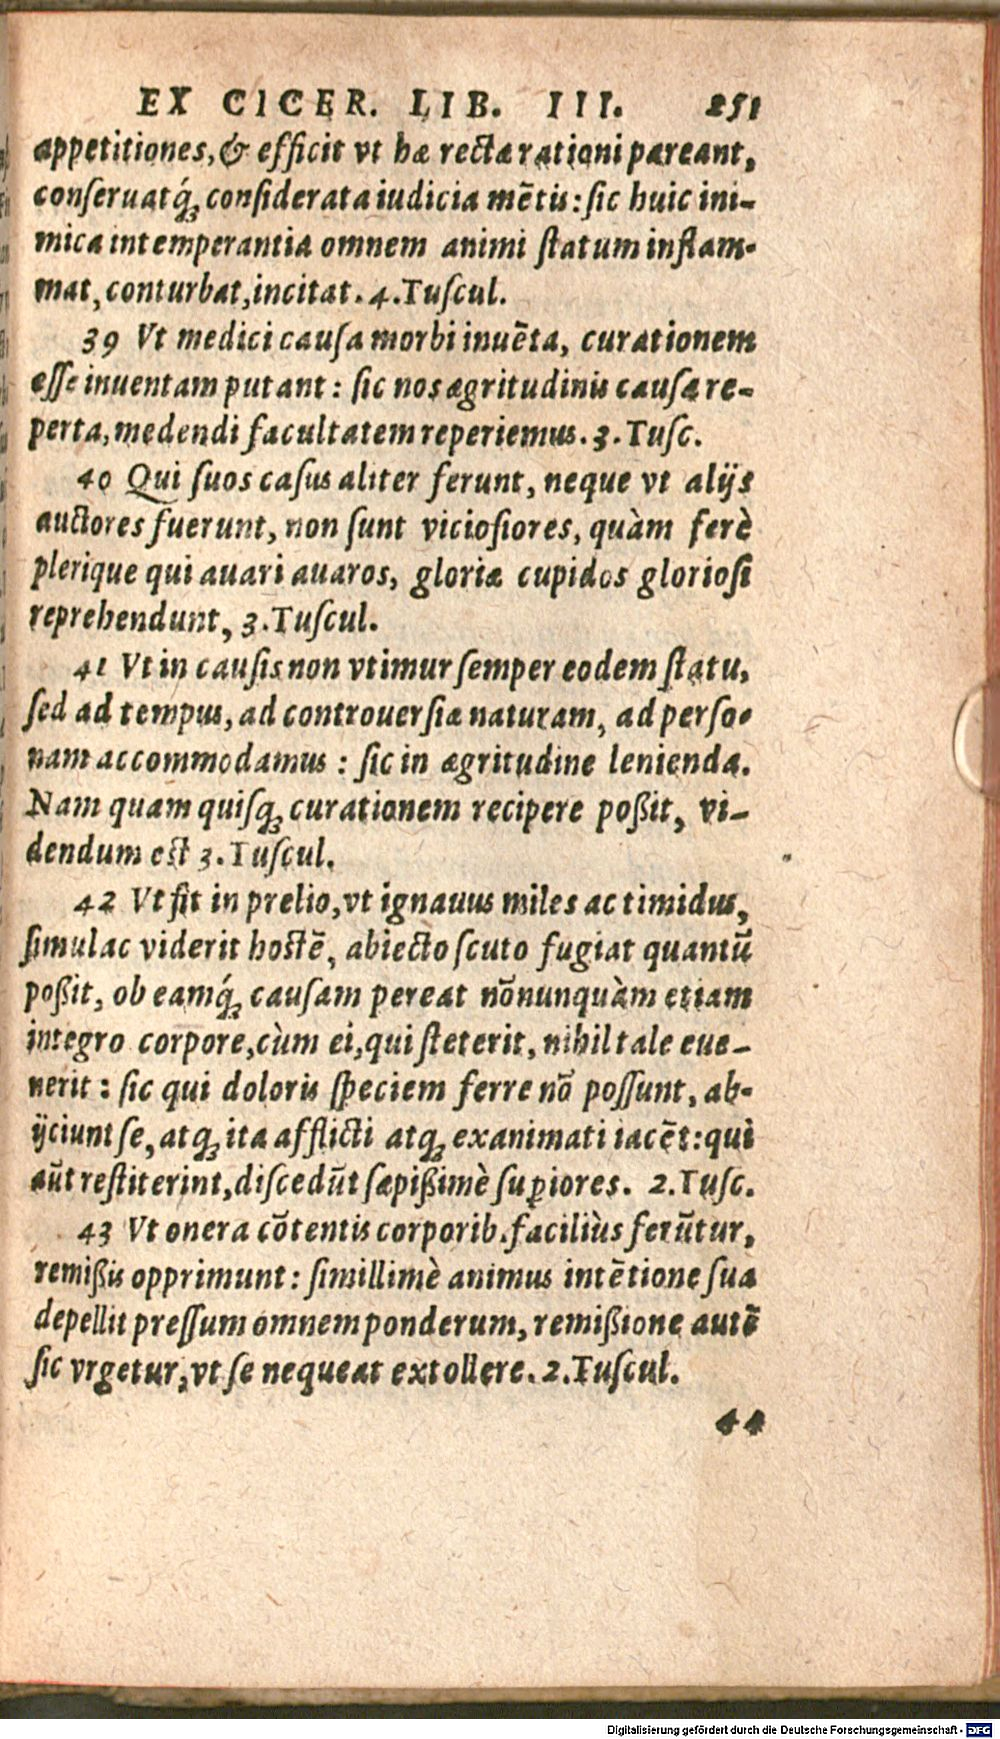 EX CICER. LIB. III. 251
appetitiones, & efficit vt hæ rectæ rationi pareant,
conſeruatq́ꝫ conſiderata iudicia mētis: ſic huic ini-
mica intemperantia omnem animi ſtatum inflam-
mat, conturbat, incitat. 4. Tuſcul.
39 Vt medici cauſa morbi inuēta, curationem
eſſe inuentam putant: ſic nos ægritudinis cauſa re-
perta, medendi facultatem reperiemus. 3. Tuſc.
40 Qui ſuos caſus aliter ferunt, neque vt alijs
auctores fuerunt, non ſunt vicioſiores, quàm ferè
plerique qui auari auaros, gloriæ cupidos glorioſi
reprehendunt, 3. Tuſcul.
41 Vt in cauſis non vtimur ſemper eodem ſtatu,
ſed ad tempus, ad controuerſiæ naturam, ad perſo-
nam accommodamus: ſic in ægritudine lenienda.
Nam quam quiſqꝫ curationem recipere poßit, vi-
dendum eſt 3. Tuſcul.
42 Vt fit in prelio, vt ignauus miles ac timidus,
ſimulac viderit hoſtē, abiecto ſcuto fugiat quantū
poßit, ob eamq́ꝫ cauſam pereat nōnunquàm etiam
integro corpore, cùm ei, qui ſteterit, nihil tale eue-
nerit: ſic qui doloris ſpeciem ferre nō poſſunt, ab-
ijciunt ſe, atqꝫ ita afflicti atqꝫ exanimati iacēt: qui
aūt reſtiterint, diſcedūt ſæpißimè ſuꝑiores. 2. Tuſc.
43 Vt onera cōtentis corporib. faciliùs ferūtur,
remißis opprimunt: ſimillimè animus intētione ſua
depellit preſſum omnem ponderum, remißione autē
ſic vrgetur, vt ſe nequeat extollere. 2. Tuſcul.
44
Digitalisierung gefördert durch die Deutsche Forschungsgemeinschaft - DFG